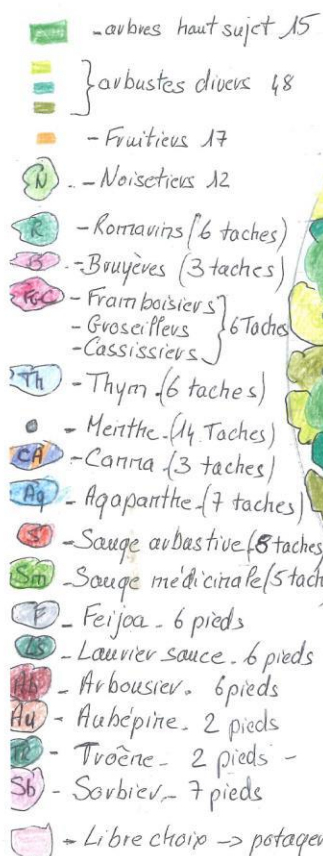 - arbres haut sujet 15
arbustes divers 48
- Fruitiers 17
N - Noisetiers 12
R - Romarins (6 taches)
B - Bruyères (3 taches)
FGC - Framboisiers
- Groseillers 6 Taches
- Cassissiers
Th - Thym. (6 taches)
- Menthe. (14 Taches)
CA - Canna (3 taches)
Ag - Agapanthe. (7 taches)
S - Sauge arbustive (8 taches
Sm - Sauge médicinale (5 tach
F - Feijoa - 6 pieds
LS - Laurier sauce. 6 pieds
Ab - Arbousier. 6 pieds
Au - Aubépine. 2 pieds
- Troène - 2 pieds -
Sb - Sorbier - 7 pieds
- Libre choix -> potager